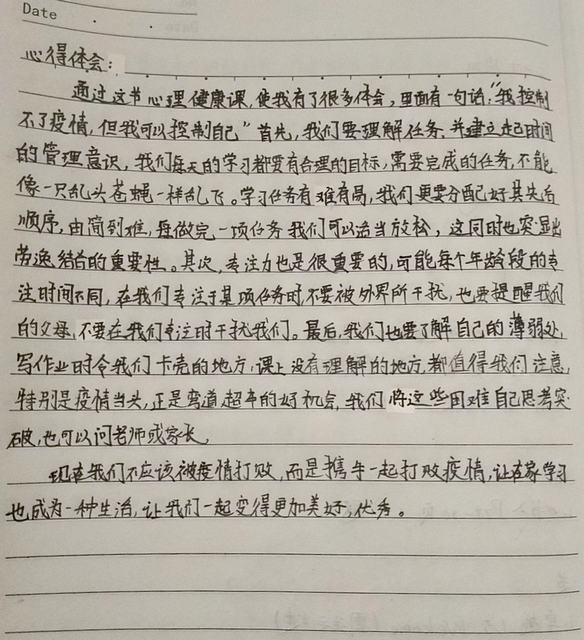 Date
心得体会：
通过这节心理健康课，使我有了很多体会，里面有一句话，“我控制
不了疫情，但我可以控制自己”首先，我们要理解任务，并建立起时间
的管理意识，我们每天的学习都要有合理的目标，需要完成的任务，不能
像一只乱头苍蝇一样乱飞。学习任务有难有易，我们更要分配好其先后
顺序，由简到难，每做完一项任务我们可以适当放松，这同时也突显出
劳逸结合的重要性。其次，专注力也是很重要的，可能每个年龄段的专
注时间不同，在我们专注于某项任务时，不要被外界所干扰，也要提醒我们
的父母，不要在我们专注时干扰我们。最后，我们也要了解自己的薄弱处，
写作业时令我们卡壳的地方，课上没有理解的地方，都值得我们注意，
特别是疫情当头，正是弯道超车的好机会，我们将这些困难自己思考突
破，也可以问老师或家长。
现在我们不应该被疫情打败，而是携手一起打败疫情，让在家学习
也成为一种生活，让我们一起变得更加美好，优秀。